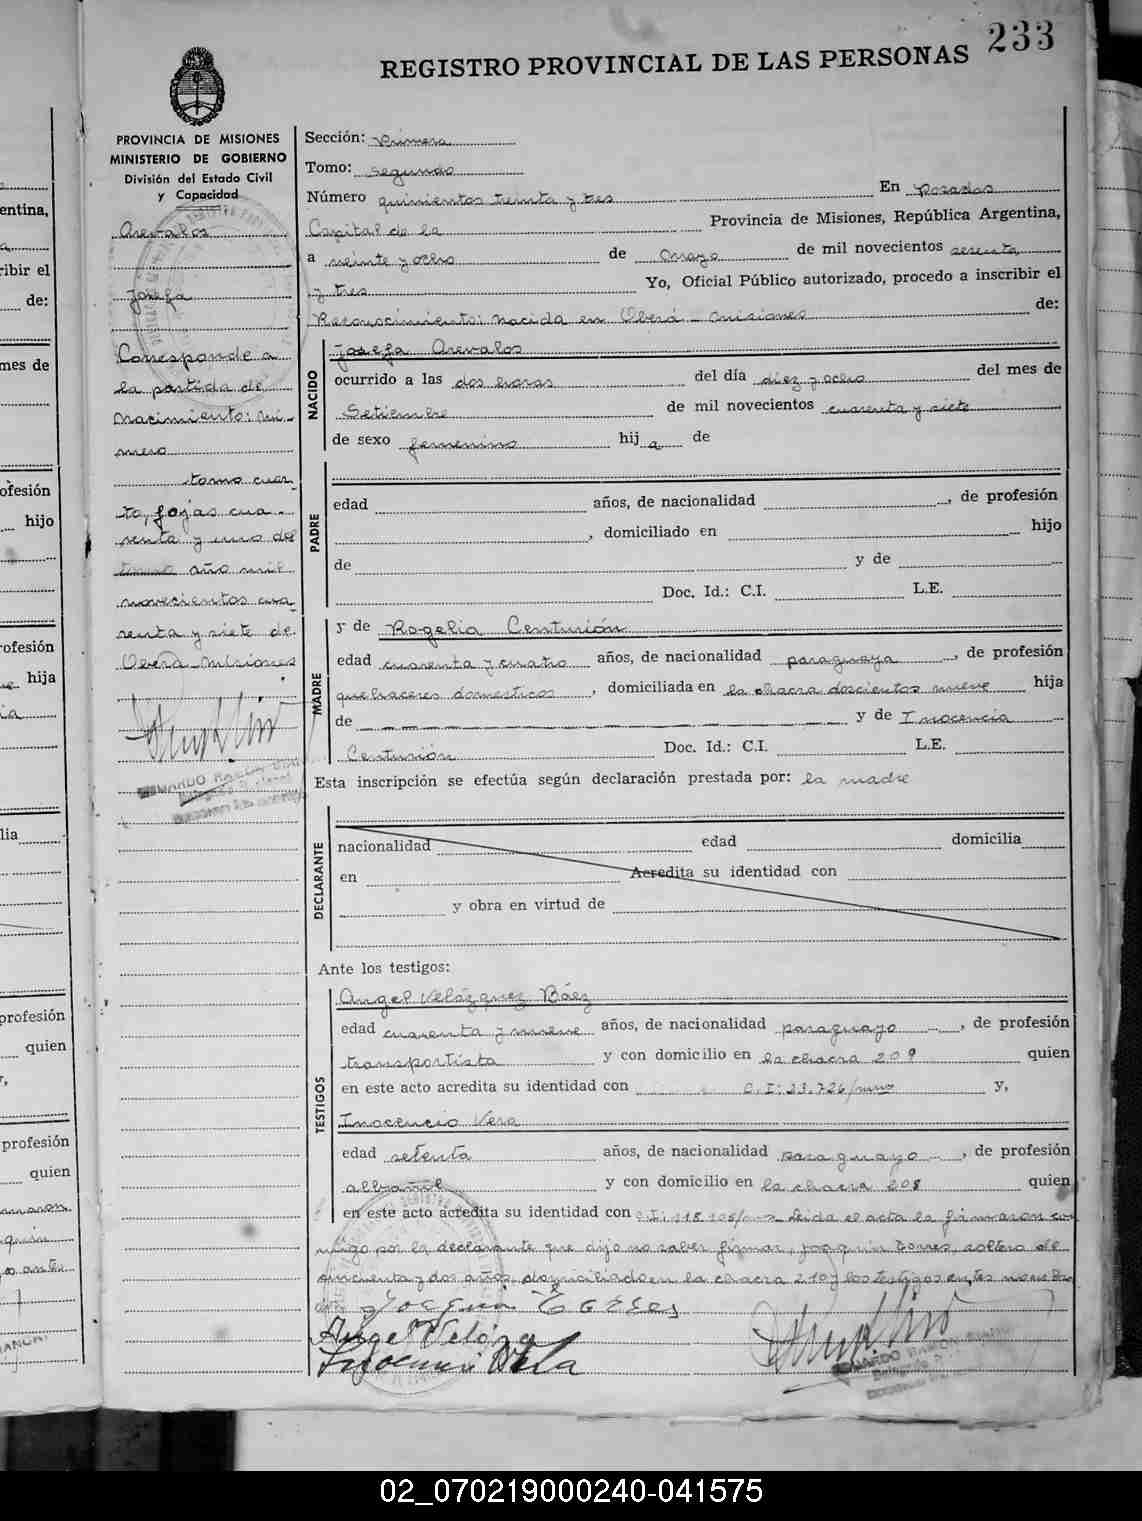 233
REGISTRO PROVINCIAL DE LAS PERSONAS
PROVINCIA DE MISIONES
MINISTERIO DE GOBIERNO
División del Estado Civil
y Capacidad
Arevalos
Josefa
Corresponde a
la partida de
Nacimiento: Nú-
mero
tomo cuar-
to, fojas cua-
renta y uno del
año mil
novecientos cua-
renta y siete de
Oberá Misiones
Sección: Primera
Tomo: Segundo
Número quinientos treinta y tres En Posadas
Capital de la Provincia de Misiones, República Argentina,
a veinte y ocho de Mayo de mil novecientos sesenta
y tres Yo, Oficial Público autorizado, procedo a inscribir el
Reconocimiento: nacida en Oberá - Misiones de:
NACIDO
Josefa Arevalos
ocurrido a las dos horas del día diez y ocho del mes de
Setiembre de mil novecientos cuarenta y siete
de sexo femenino hij a de
PADRE
edad años, de nacionalidad , de profesión
, domiciliado en hijo
de y de
Doc. Id.: C.I. L.E.
MADRE
y de Rogelia Centurión
edad cuarenta y cuatro años, de nacionalidad paraguaya , de profesión
quehaceres domesticos , domiciliada en la chacra doscientos nueve hija
de y de Inocencia
Centurión Doc. Id.: C.I. L.E.
Esta inscripción se efectúa según declaración prestada por: la madre
DECLARANTE
nacionalidad edad domicilia
en Acredita su identidad con
y obra en virtud de
Ante los testigos:
TESTIGOS
Angel Velázquez Báez
edad cuarenta y nueve años, de nacionalidad paraguayo , de profesión
transportista y con domicilio en la chacra 209 quien
en este acto acredita su identidad con C.I: 23.726/ y,
Inocencio Vera
edad setenta años, de nacionalidad paraguayo , de profesión
albañil y con domicilio en la chacra 208 quien
en este acto acredita su identidad con Leida el acta la firmaron con
migo por la declarante que dijo no saber firmar, Joaquin Torres, soltero de
cincuenta y dos años, domiciliado en la chacra 210 y los testigos antes nombra
Angel Veláz
02_070219000240-041575